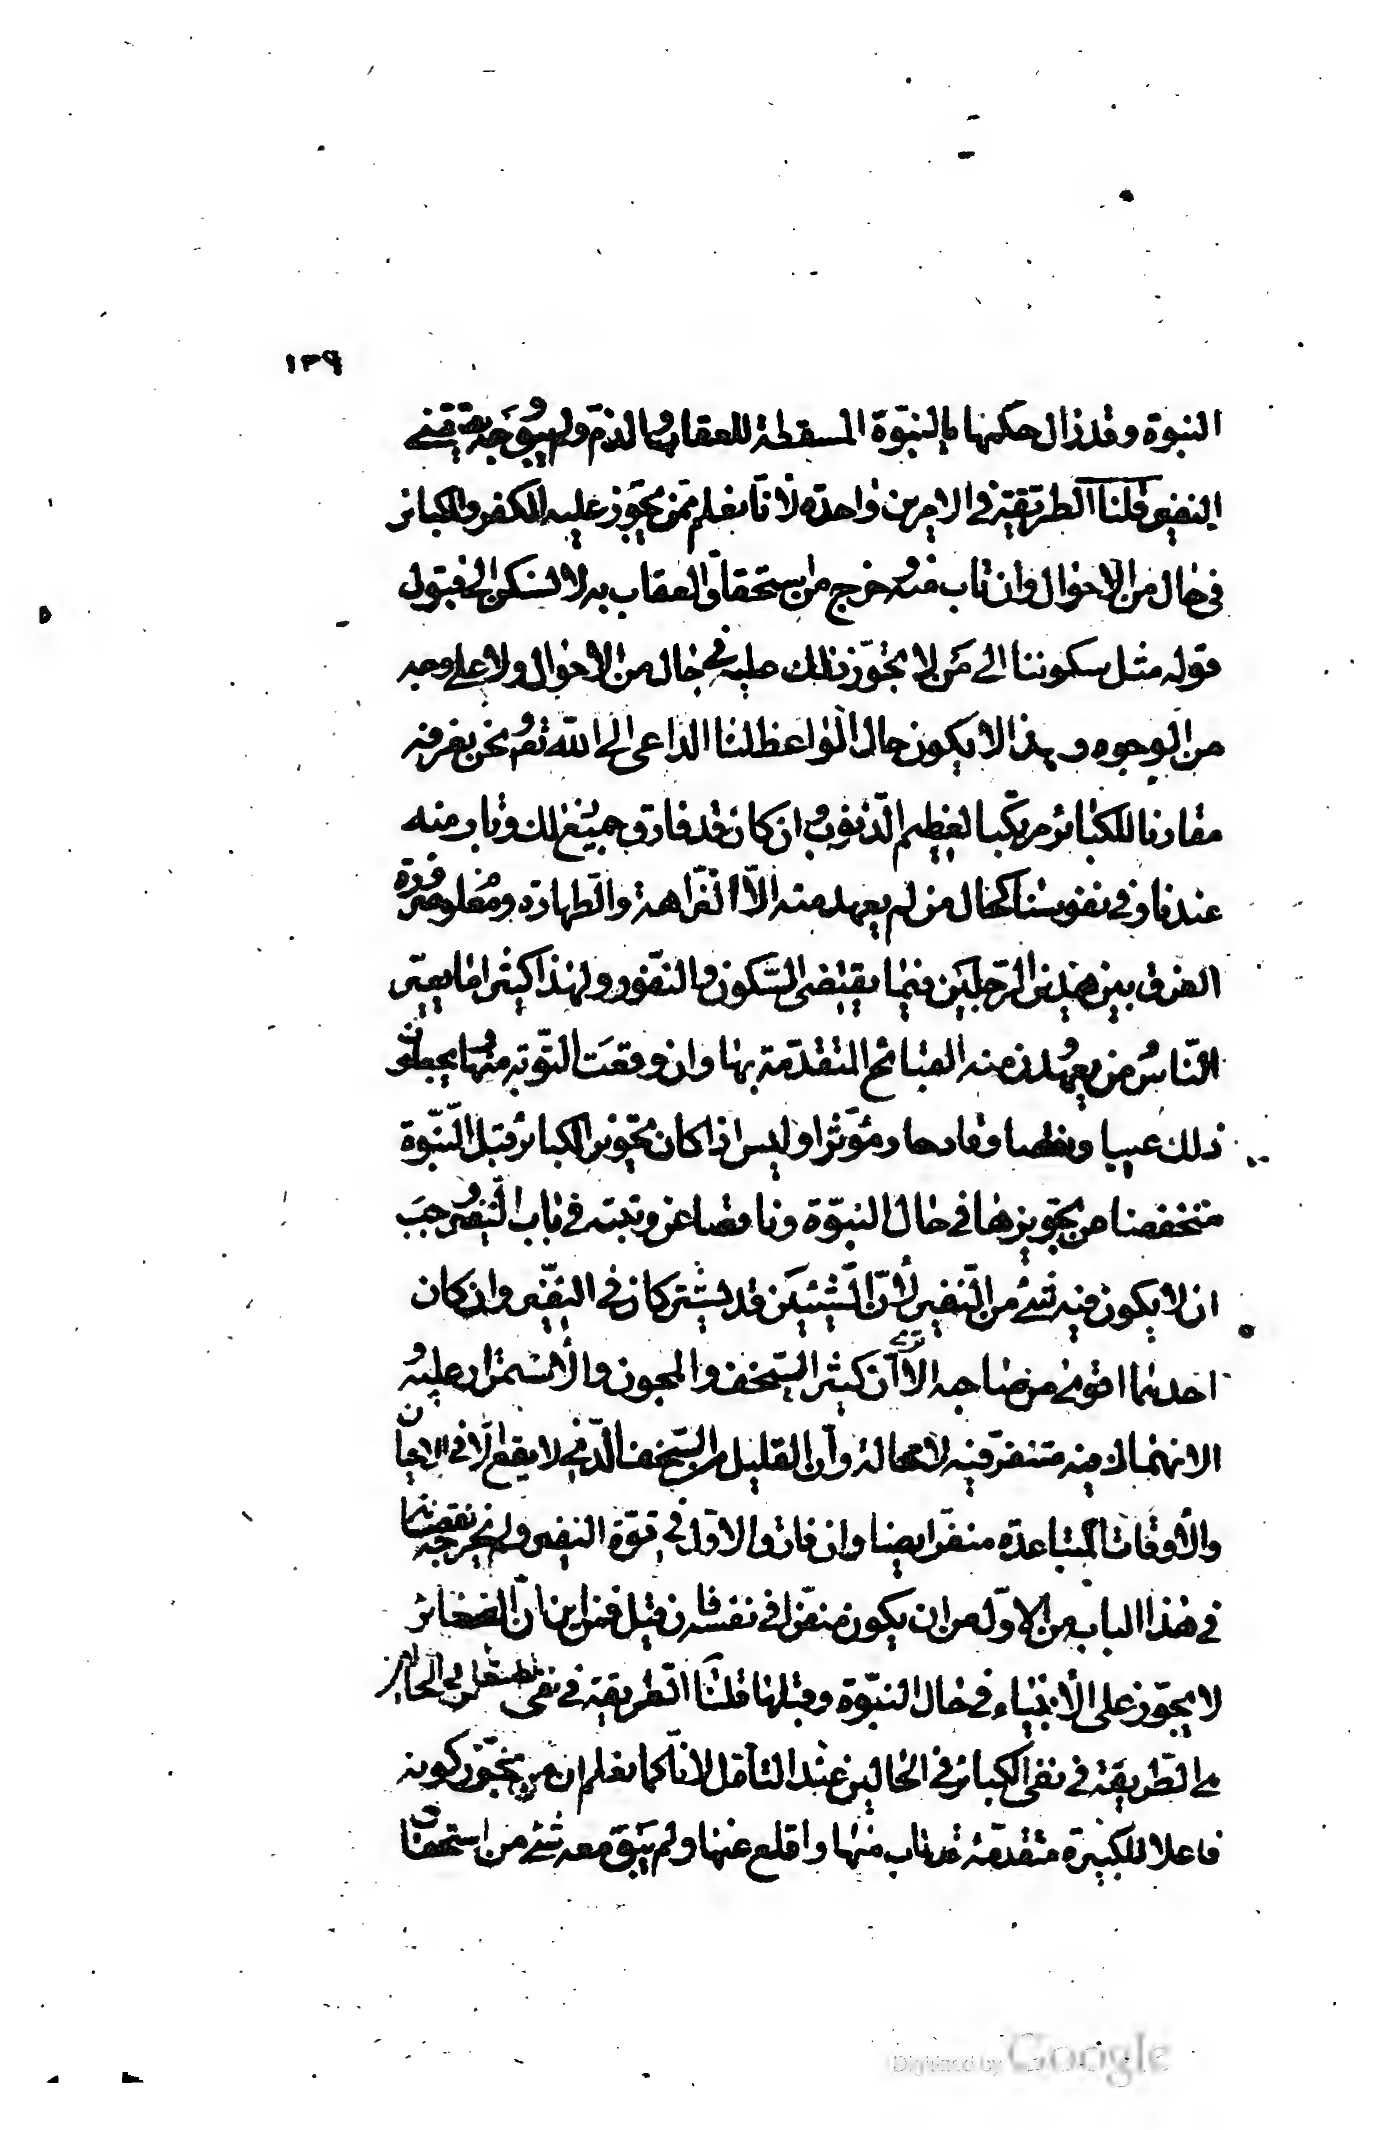 ١٣٩
النبوة وقد زال حكمها بالنبوّة المسقطة للعقاب والذمّ ولم يبق وجه يقتضي
التنفير قلنا الطريقة في الامرين واحدة لانّا نعلم ممّن يجوّز عليه الكفر والكبائر
في حال من الاحوال وان تاب منه وخرج من استحقاق العقاب به لا نسكن الى قبول
قوله مثل سكوننا الى من لا يجوّز ذلك عليه في حال من الاحوال ولا على وجه
من الوجوه وبهذا لا يكون حال الواعظ لنا الداعي الى اللّه تع ونحن نعرفه
مقارنا للكبائر مرتكبا لعظيم الذنوب وان كان قد فارق جميع ذلك وتاب منه
عندنا وفي نفوسنا كحال من لم يعهد منه الّا النّزاهة والطّهارة ومعلوم ضرورة
الفرق بين هذين الرّجلين فيما يقتضي السّكون والنفّور ولهذا كثيرا ما يعيّر
النّاس من يعهدون منه القبائح المتقدّمة بها وان وقعت التّوبة منها ويجعلون
ذلك عيبا ونقصا وقادحا ومؤثّرا وليس اذا كان تجويز الكبائر قبل النّبوّة
منخفضا من تجويزها في حال النبوّة وناقصا عن رتبته في باب التّنفير وجب
ان لا يكون فيه شئ من التّنفير لأنّ الشّيئين قد يشتركان في التنفّير وان كان
احدهما اقوى من صاحبه الا ترى أن كثير السّخف والمجون والأستمرار عليه و
الانهماك فيه منفّر لا محالة وأن القليل من السّخف الّذي لا يقع الّا في الاحيان
والأوقات المتباعدة منفّر ايضا وان فارق الاوّل في قوّة التنفير ولم يخرجه نقصانه
في هذا الباب من الاوّل من ان يكون منفّرا في نفسه فان قيل فمن اين انّ الصغائر
لا يجوّز على الأنبياء في حال النبّوة وقبلها قلنا الطّريقة في نفي الصغائر في الحالين
هي الطّريقة في نفي الكبائر في الحالين عند التأمّل لانّا كما نعلم ان من يجوّز كونه
فاعلا للكبيرة متقدّمة قد تاب منها واقلع عنها ولم يبق معه شئ من استحقاق
Digitized by Google